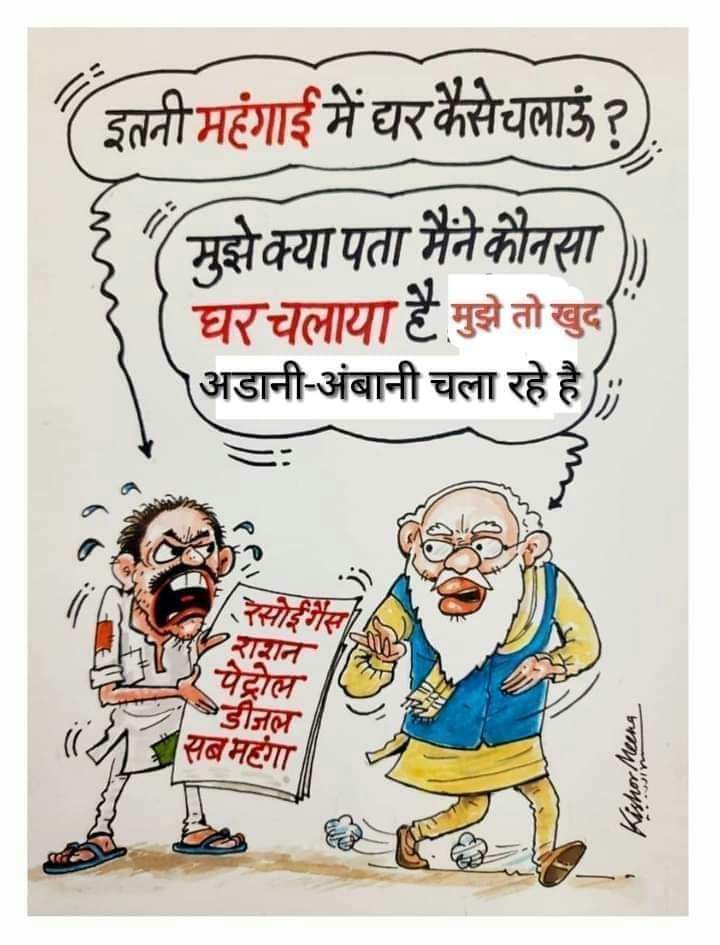 इतनी महंगाई में घर कैसे चलाऊं ?
मुझे क्या पता मैंने कौनसा
घर चलाया है मुझे तो खुद
अडानी-अंबानी चला रहे है
रसोई गैस
राशन
पेट्रोल
डीजल
सब महंगा
Kishor Meena